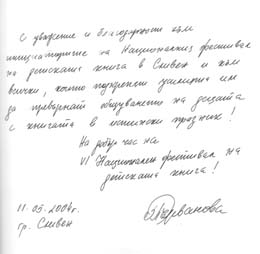 С уважение и благодарност към
инициаторите на Националния фестивал
на детската книга в Сливен и към
всички, които подкрепят усилията им
да превърнат общуването на децата
с книгата в истински празник!
На добър час на
VI Национален фестивал на
детската книга!
11.05.2004г.
гр. Сливен